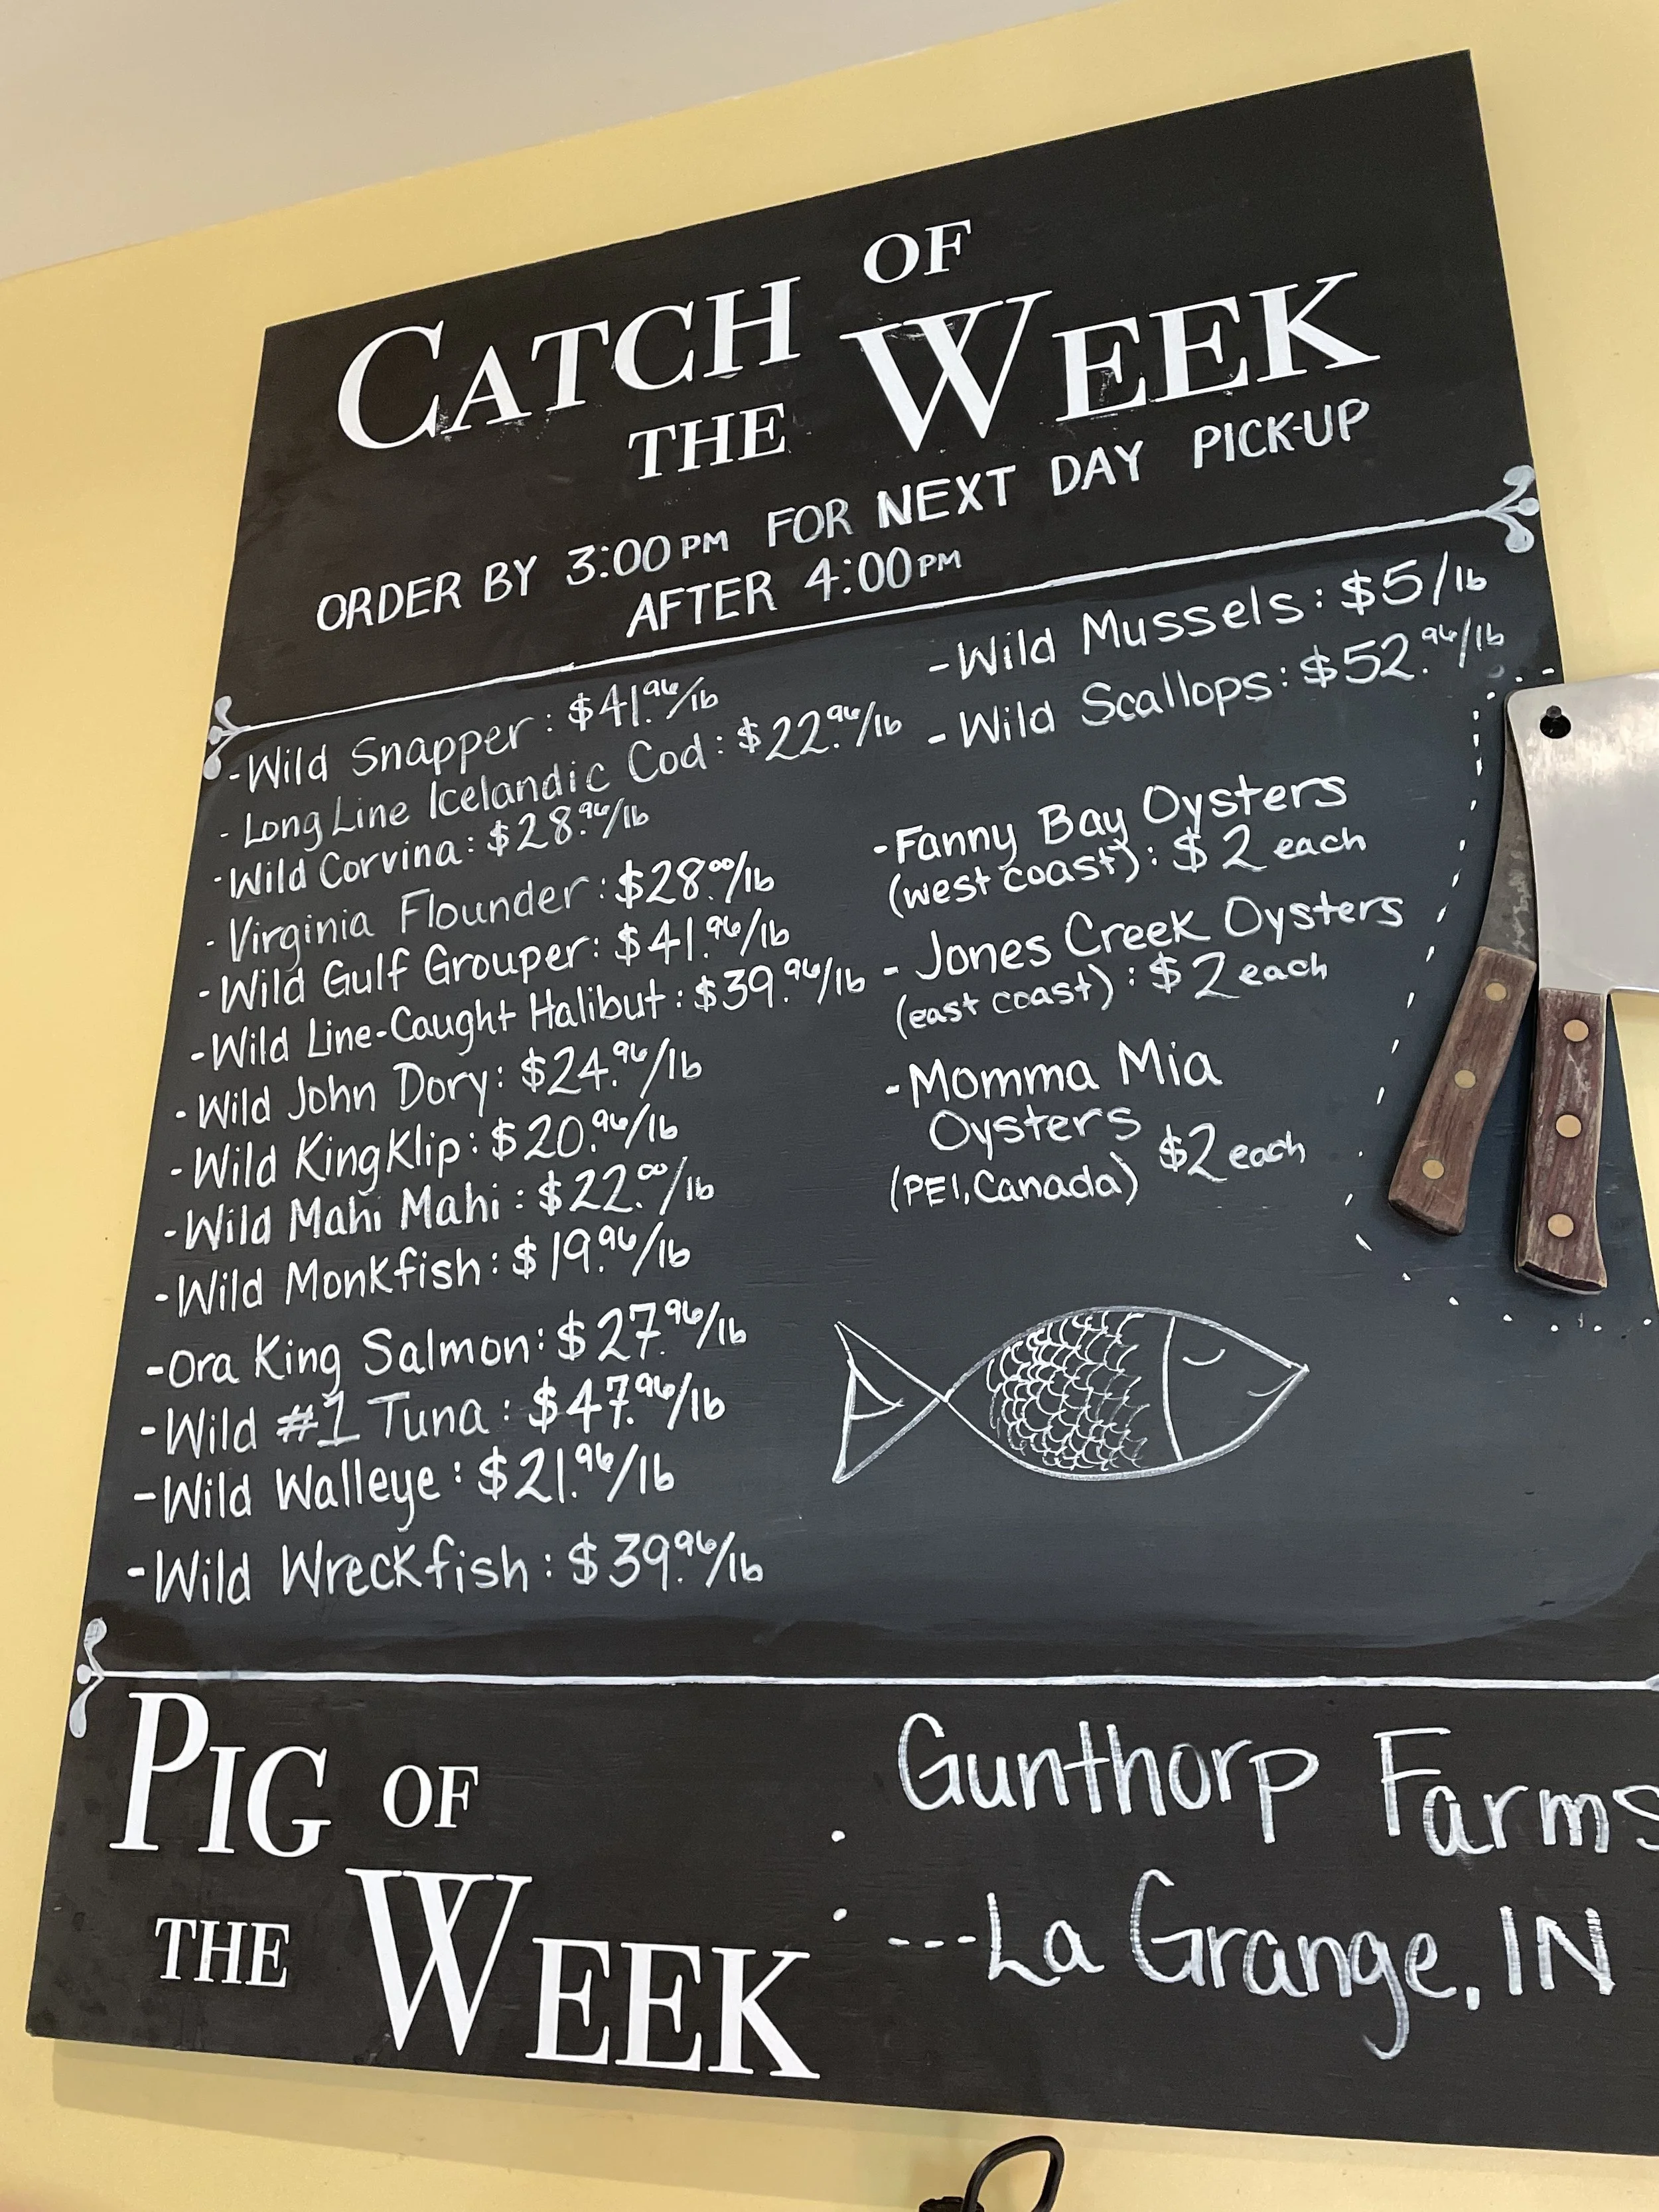 CATCH OF
THE WEEK
ORDER BY 3:00PM FOR NEXT DAY PICK-UP
AFTER 4:00PM
-Wild Snapper: $41.96/lb
-Long Line Icelandic Cod: $22.96/lb
-Wild Corvina: $28.96/lb
-Virginia Flounder: $28.00/lb
-Wild Gulf Grouper: $41.96/lb
-Wild Line-Caught Halibut: $39.96/lb
-Wild John Dory: $24.96/lb
-Wild KingKlip: $20.96/lb
-Wild Mahi Mahi: $22.00/lb
-Wild Monkfish: $19.96/lb
-Ora King Salmon: $27.96/lb
-Wild #1 Tuna: $47.96/lb
-Wild Walleye: $21.96/lb
-Wild Wreckfish: $39.96/lb
-Wild Mussels: $5/lb
-Wild Scallops: $52.96/lb
-Fanny Bay Oysters
(west coast): $2 each
-Jones Creek Oysters
(east coast): $2 each
-Momma Mia
Oysters
(PEI, Canada) $2 each
PIG OF
THE WEEK :
Gunthorp Farms
---La Grange, IN